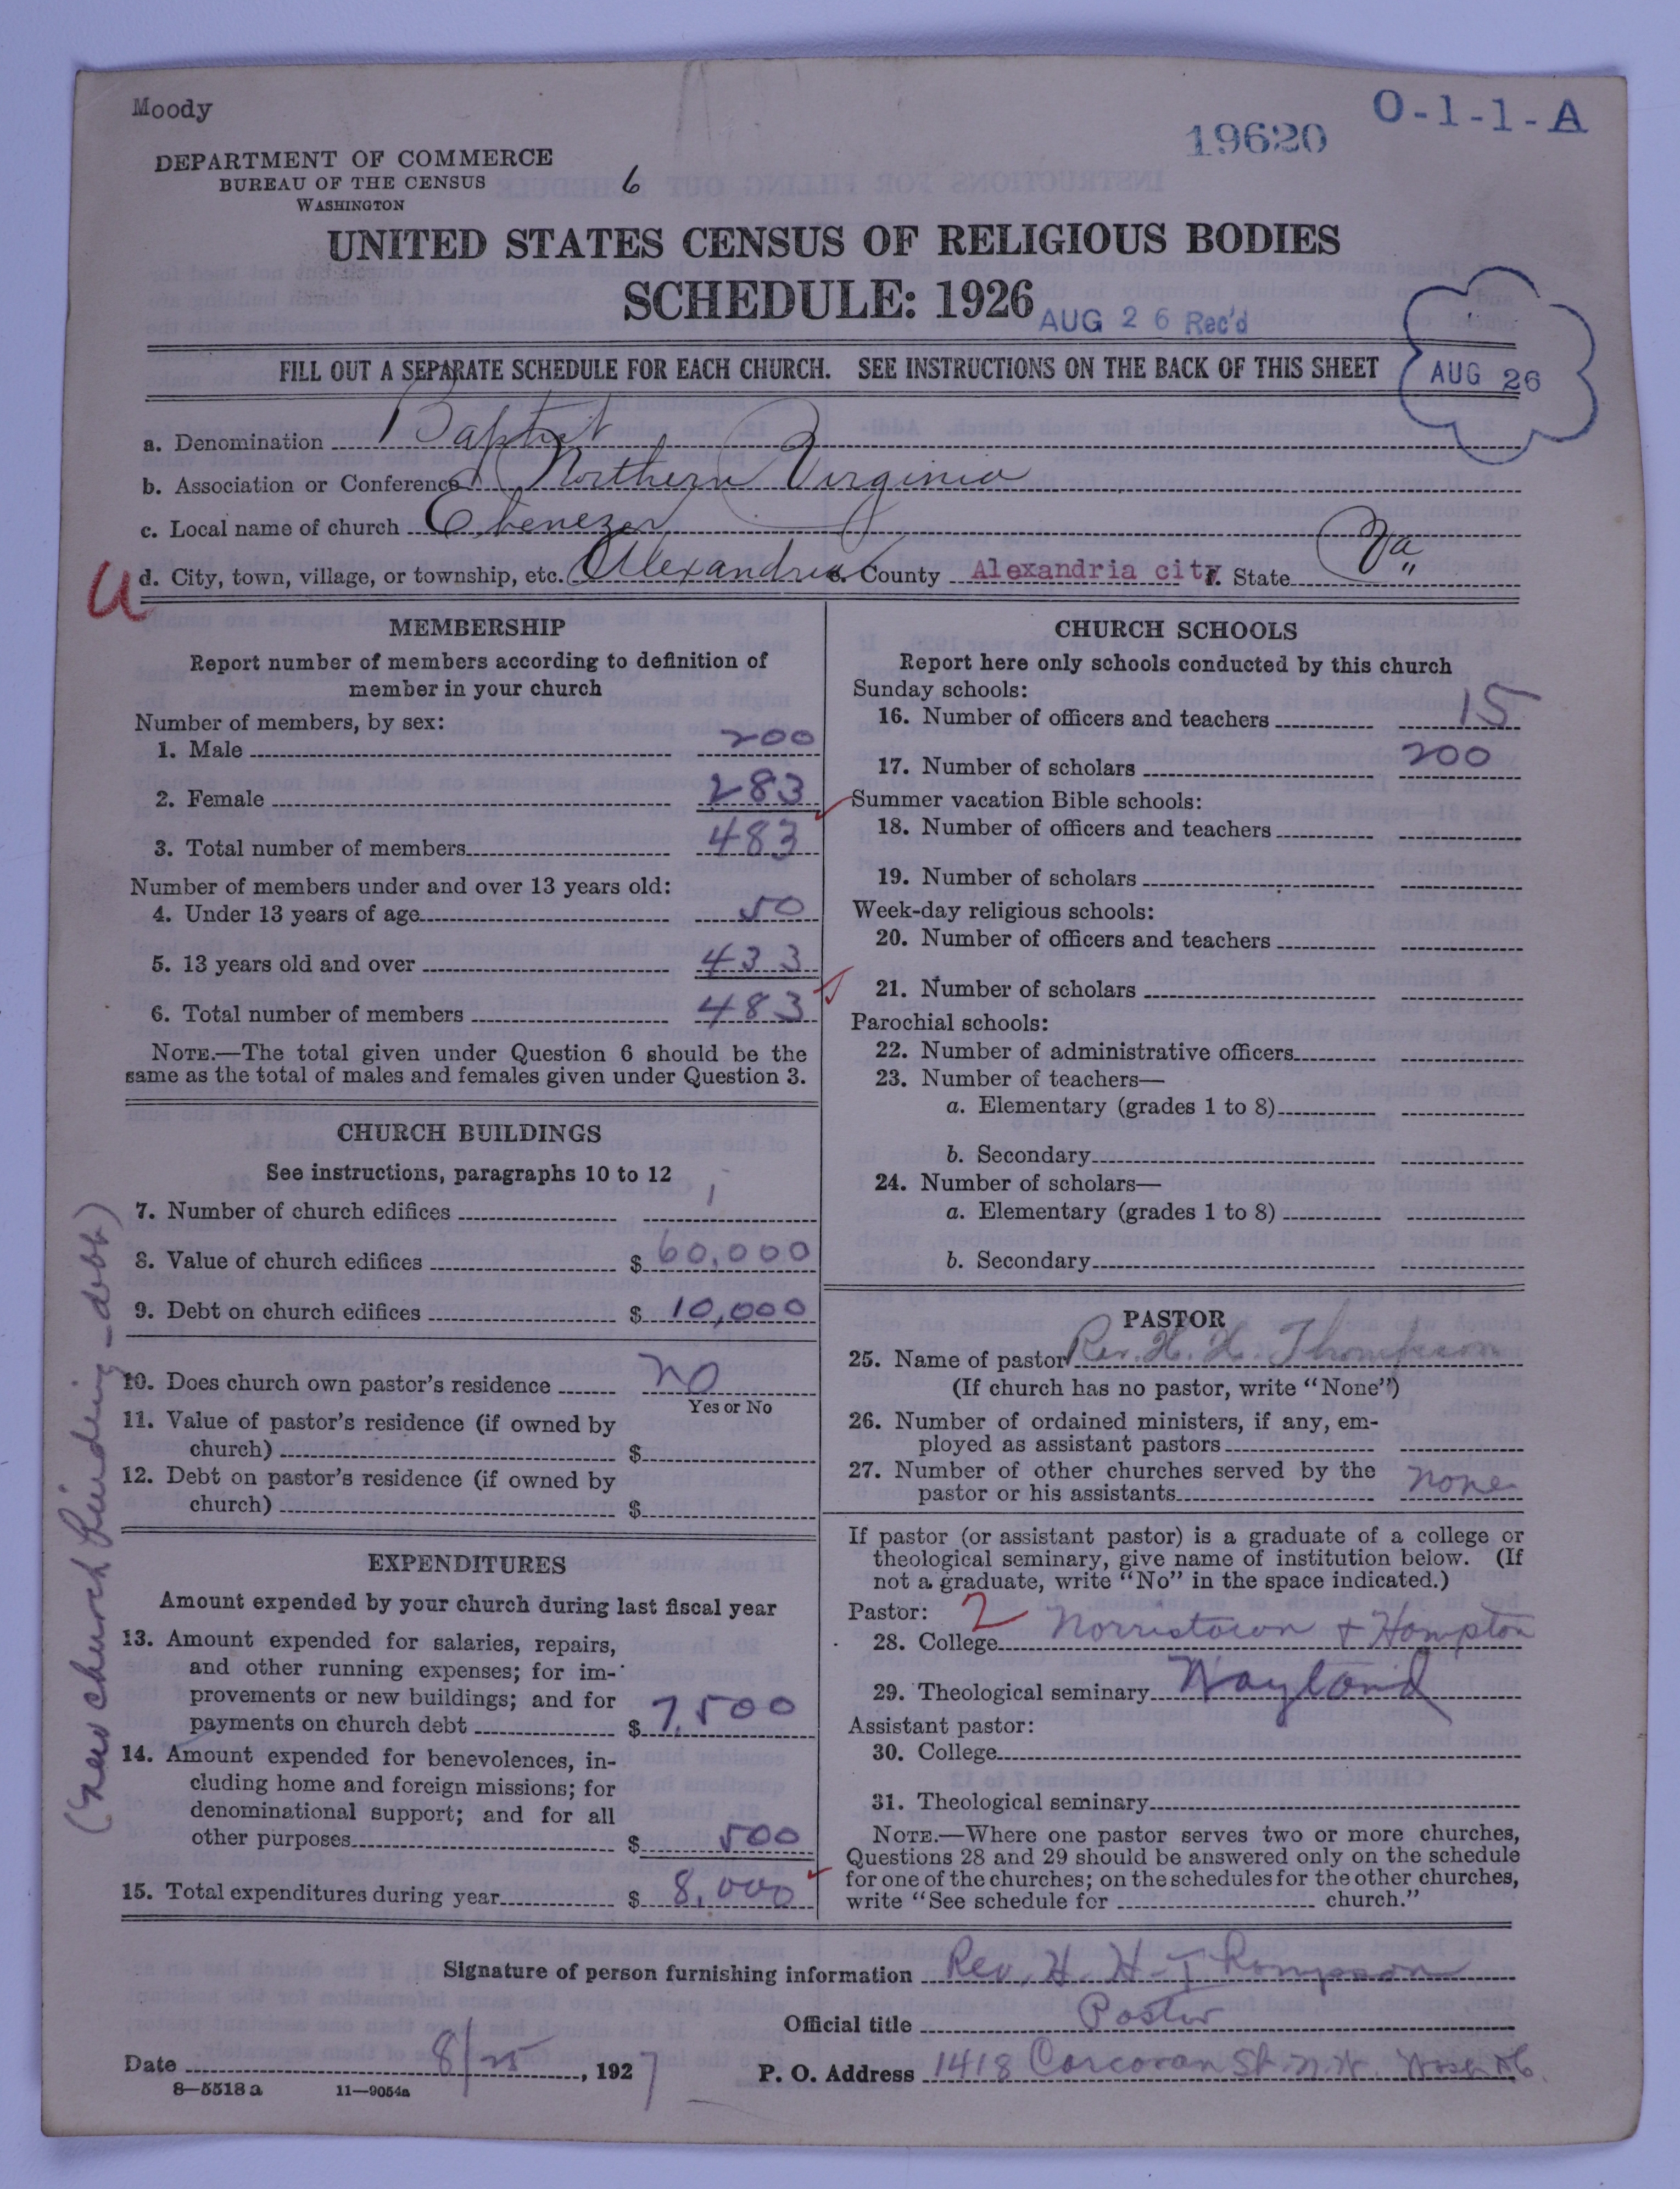 Moody
O-1-1-A
19620
DEPARTMENT OF COMMERCE
BUREAU OF THE CENSUS
WASHINGTON
6
UNITED STATES CENSUS OF RELIGIOUS BODIES
SCHEDULE: 1926
AUG 26 Rec'd
FILL OUT A SEPARATE SCHEDULE FOR EACH CHURCH. SEE INSTRUCTIONS ON THE BACK OF THIS SHEET
AUG 26
a. Denomination Baptist
b. Association or Conference Northern Virginia
c. Local name of church Ebenezer
U
d. City, town, village, or township, etc. Alexandria e. County Alexandria city f. State Va
MEMBERSHIP
Report number of members according to definition of
member in your church
Number of members, by sex:
1. Male 200
2. Female 283
3. Total number of members 483
Number of members under and over 13 years old:
4. Under 13 years of age 50
5. 13 years old and over 433
6. Total number of members 483
NOTE.—The total given under Question 6 should be the
same as the total of males and females given under Question 3.
CHURCH BUILDINGS
See instructions, paragraphs 10 to 12
7. Number of church edifices 1
8. Value of church edifices $ 60,000
9. Debt on church edifices $ 10,000
10. Does church own pastor's residence no
Yes or No
11. Value of pastor's residence (if owned by
church) $
12. Debt on pastor's residence (if owned by
church) $
EXPENDITURES
Amount expended by your church during last fiscal year
13. Amount expended for salaries, repairs,
and other running expenses; for im-
provements or new buildings; and for
payments on church debt $ 7,500
14. Amount expended for benevolences, in-
cluding home and foreign missions; for
denominational support; and for all
other purposes $ 500
15. Total expenditures during year $ 8,000
(New church building - debt)
CHURCH SCHOOLS
Report here only schools conducted by this church
Sunday schools:
16. Number of officers and teachers 15
17. Number of scholars 200
Summer vacation Bible schools:
18. Number of officers and teachers
19. Number of scholars
Week-day religious schools:
20. Number of officers and teachers
21. Number of scholars
Parochial schools:
22. Number of administrative officers
23. Number of teachers—
a. Elementary (grades 1 to 8)
b. Secondary
24. Number of scholars—
a. Elementary (grades 1 to 8)
b. Secondary
PASTOR
25. Name of pastor Rev. H. H. Thompson
(If church has no pastor, write "None")
26. Number of ordained ministers, if any, em-
ployed as assistant pastors
27. Number of other churches served by the
pastor or his assistants none
If pastor (or assistant pastor) is a graduate of a college or
theological seminary, give name of institution below. (If
not a graduate, write "No" in the space indicated.)
Pastor: 2
28. College Norristown + Hampton
29. Theological seminary Wayland
Assistant pastor:
30. College
31. Theological seminary
NOTE.—Where one pastor serves two or more churches,
Questions 28 and 29 should be answered only on the schedule
for one of the churches; on the schedules for the other churches,
write "See schedule for church."
Signature of person furnishing information Rev. H. H. Thompson
Official title Pastor
Date 8/25, 1927 P. O. Address 1418 Corcoran St. N.W. Wash DC.
8—5518 a 11—9054a